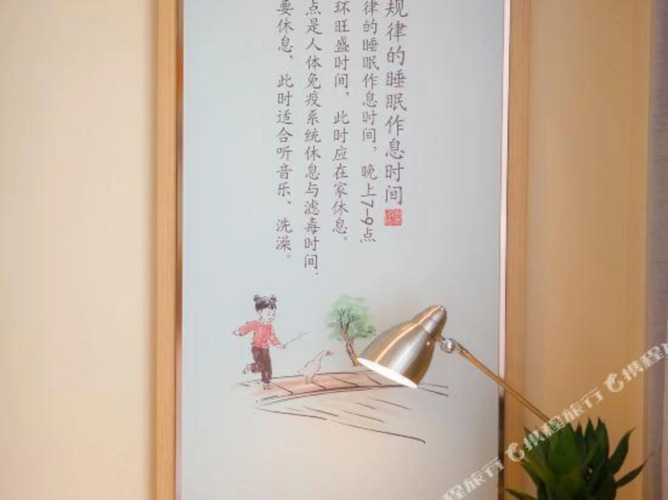 规律的睡眠作息时间
律的睡眠作息时间，晚上7-9点
环旺盛时间，此时应在家休息。
点是人体免疫系统休息与滤毒时间，
要休息，此时适合听音乐、洗澡。
携程旅行
携程旅行